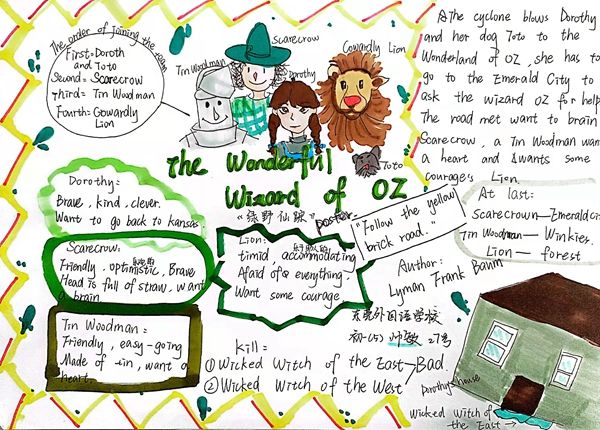 The order of joining the team
First: Doroth
and Toto
Second: Scarecrow
Third: Tin Woodman
Fourth: Cowardly
Lion
Tin Woodman
Scarecrow
Dorothy
Cowardly Lion
Toto
The cyclone blows Dorothy
and her dog Toto to the
Wonderland of OZ, she has to
go to the Emerald City to
ask the wizard OZ for help
The road met want to brain
Scarecrow, a Tin Woodman want
a heart and wants some
courage's Lion.
The Wonderful
Wizard of OZ
"绿野仙踪" poster
"Follow the yellow
brick road."
Dorothy:
Brave, kind, clever.
Want to go back to kansas
Scarecrow:
Friendly, optimistic, Brave
Head is full of straw, want
a brain.
Tin Woodman:
Friendly, easy-going
Made of tin, want a
heart.
Lion:
timid, accommodating
Afaid of everything.
Want some courage
At last:
Scarecrown—Emerald city
Tin Woodman—Winkies.
Lion—forest
Author:
Lyman Frank Baum
东莞外国语学校
27号
kill:
①Wicked Witch of the East
②Wicked Witch of the West
Bad.
Dorothy's house
Wicked Witch of
the East →